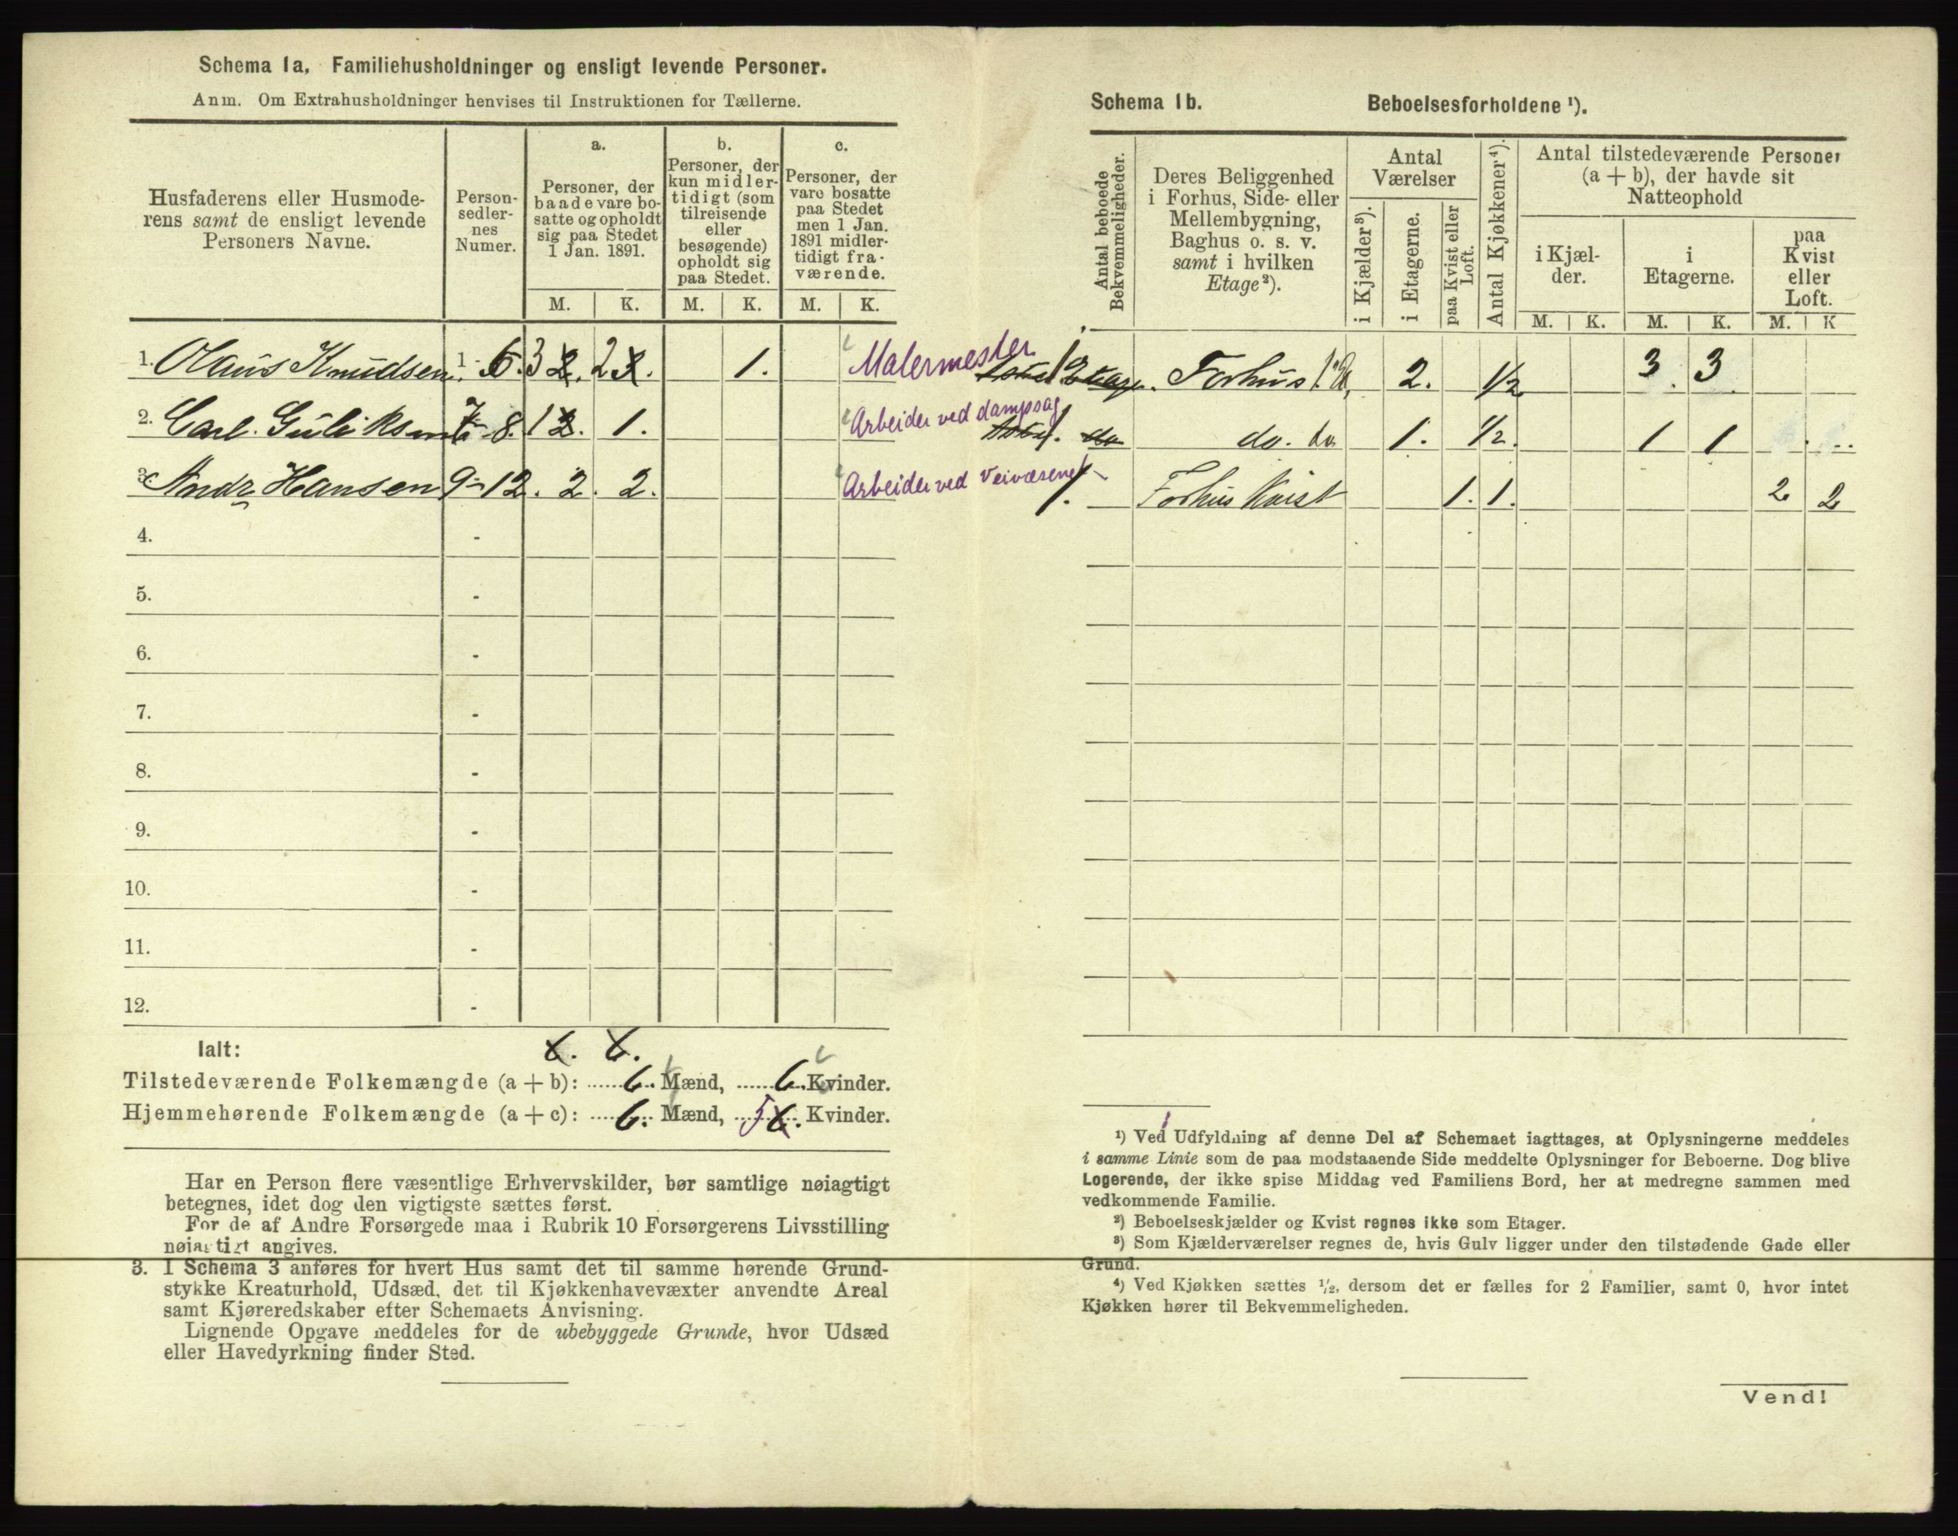 Schema 1a. Familiehusholdninger og ensligt levende Personer.
Anm. Om Extrahusholdninger henvises til Instruktionen for Tællerne.
Husfaderens eller Husmode-
rens samt de ensligt levende
Personers Navne.
Person-
sedler-
nes
Numer.
a.
Personer, der
baade vare bo-
satte og opholdt
sig paa Stedet
1 Jan. 1891.
b.
Personer, der
kun midler-
tidigt (som
tilreisende
eller
besøgende)
opholdt sig
paa Stedet.
c.
Personer, der
vare bosatte
paa Stedet
men 1 Jan.
1891 midler-
tidigt fra-
værende.
M. K. M. K. M. K.
1. Olaus Knudsen 1 - 6. 3 2. 1. Malermester
2. Carl Guliksen 7 - 8. 1 1. Arbeider ved dampsag
3. Andr Hansen 9 - 12. 2. 2. Arbeider ved Veivæsenet
4. -
5. -
6. -
7. -
8. -
9. -
10. -
11. -
12. -
Ialt: 6. 6.
Tilstedeværende Folkemængde (a + b): 6. Mænd, 6. Kvinder.
Hjemmehørende Folkemængde (a + c): 6. Mænd, 5 6. Kvinder.
Har en Person flere væsentlige Erhvervskilder, bør samtlige nøiagtigt
betegnes, idet dog den vigtigste sættes først.
For de af Andre Forsørgede maa i Rubrik 10 Forsørgerens Livsstilling
nøiagtigt angives.
3. I Schema 3 anføres for hvert Hus samt det til samme hørende Grund-
stykke Kreaturhold, Udsæd, det til Kjøkkenhavevæxter anvendte Areal
samt Kjøreredskaber efter Schemaets Anvisning.
Lignende Opgave meddeles for de ubebyggede Grunde, hvor Udsæd
eller Havedyrkning finder Sted.
Schema 1b. Beboelsesforholdene ¹).
Antal beboede
Bekvemmeligheder.
Deres Beliggenhed
i Forhus, Side- eller
Mellembygning,
Baghus o. s. v.
samt i hvilken
Etage²).
Antal
Værelser
i Kjælder³).
i Etagerne.
paa Kvist eller
Loft.
Antal Kjøkkener⁴).
Antal tilstedeværende Personer
(a + b), der havde sit
Natteophold
i Kjæl-
der.
i
Etagerne.
paa
Kvist
eller
Loft.
M. K. M. K. M. K
1 Forhus 2. 1/2 3 3
1. do. do 1. 1/2. 1 1
1. Forhus Kvist 1. 1. 2 2
¹) Ved Udfyldning af denne Del af Schemaet iagttages, at Oplysningerne meddeles
i samme Linie som de paa modstaaende Side meddelte Oplysninger for Beboerne. Dog blive
Logerende, der ikke spise Middag ved Familiens Bord, her at medregne sammen med
vedkommende Familie.
²) Beboelseskjælder og Kvist regnes ikke som Etager.
³) Som Kjælderværelser regnes de, hvis Gulv ligger under den tilstødende Gade eller
Grund.
⁴) Ved Kjøkken sættes ½, dersom det er fælles for 2 Familier, samt 0, hvor intet
Kjøkken hører til Bekvemmeligheden.
Vend!